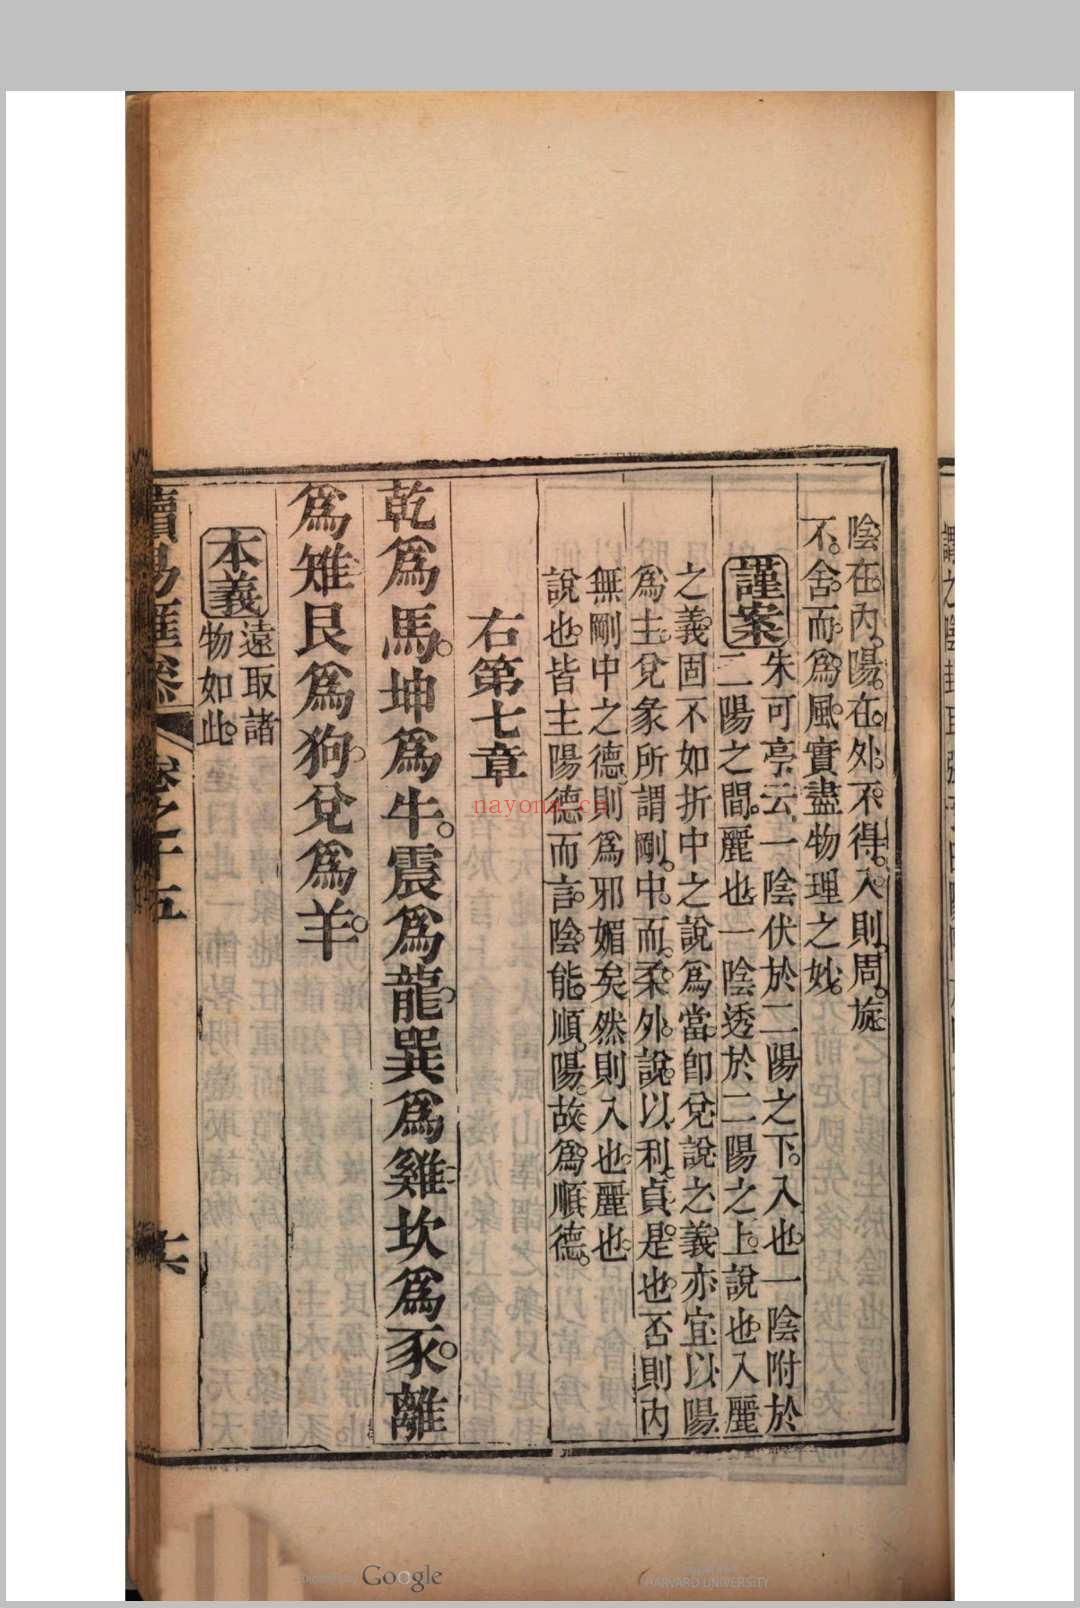 陰在內。陽在外。不得入。則周旋
不舍而爲風。實盡物理之妙。
謹案
朱可亭云。一陰伏於二陽之下。入也。一陰附於
二陽之間。麗也。一陰透於二陽之上。說也。入麗
之義。固不如折中之說爲當。卽兌說之義。亦宜以陽
爲主。兌彖所謂剛中而柔外。說以利貞是也。否則內
無剛中之德。則爲邪媚矣。然則入也。麗也。
說也。皆主陽德而言。陰能順陽。故爲順德。
右第七章
乾爲馬。坤爲牛。震爲龍。巽爲雞。坎爲豕。離
爲雉。艮爲狗。兌爲羊。
本義
遠取諸
物如此。
讀易匯參
卷之十五
nayona.cn
Google
HARVARD UNIVERSITY